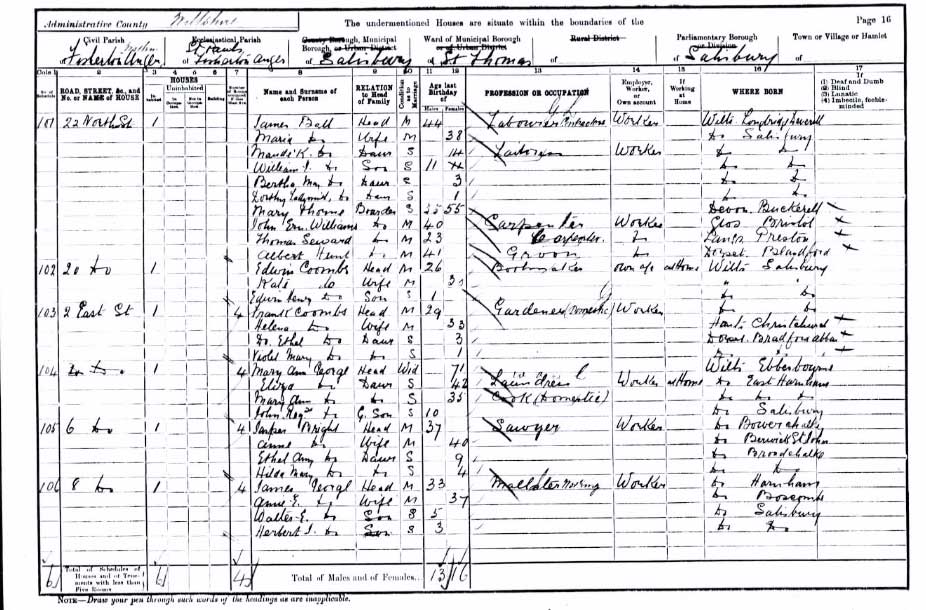 Administrative County Wiltshire The undermentioned Houses are situate within the boundaries of the Page 16
Civil Parish Ecclesiastical Parish County Borough, Municipal Borough, or Urban District Ward of Municipal Borough or of Urban District Rural District Parliamentary Borough or Division Town or Village or Hamlet
of Fisherton Anger of St Pauls Fisherton Anger of Salisbury of St Thomas of of Salisbury of
Cols. 1 2 3 4 5 6 7 8 9 10 11 12 13 14 15 16 17
No. of Schedule ROAD, STREET, &c., and No. or NAME of HOUSE HOUSES Inhabited Uninhabited Building Name and Surname of each Person RELATION to Head of Family Condition as to Marriage Age last Birthday of Males Females PROFESSION OR OCCUPATION Employer, Worker, or Own account If Working at Home WHERE BORN (1) Deaf and Dumb (2) Blind (3) Lunatic (4) Imbecile, feeble-minded
101 22 North St 1 James Ball Head M 44 Labourer Worker Wilts Longbridge Deverill
Maria do Wife M 38 do Salisbury
Maude K. do Daur S 14 Tailoress Worker do do
William J. do Son S 11 do do
Bertha May do Daur S 3 do do
Dorothy do Daur S 1 do do
Mary Thorne Boarder S 55 Devon Buckerell
John Ern. Williams do M 40 Carpenter Worker Glos Bristol
Thomas Seward do M 23 Carpenter do Preston
Albert Hunt do M 41 Groom do Dorset Blandford
102 20 do 1 Edwin Coombs Head M 26 Bootmaker own a/c at Home Wilts Salisbury
Kate do Wife M " "
Edwin Henry do Son S 1 do do
103 2 East St 1 4 Frank Coombs Head M 29 Gardener (Domestic) Worker do do
Helena do Wife M 33 Hants Christchurch
Do. Ethel do Daur S 3 Dorset Bradford Abbas
Violet Mary do do S 1 do
104 do 1 4 Mary Ann George Head Wid 71 Wilts Ebbesbourne
Eliza do Daur S 42 Laundress Worker at Home do East Harnham
Mary Ann do do S 35 Cook (Domestic) do do do
John Regd do G. Son S 10 do Salisbury
105 6 do 1 4 Bright Head M 37 Sawyer Worker do Bowerchalke
Annie do Wife M 40 do Berwick St John
Ethel Amy do Daur S 9 do Broadchalke
Hilda Mary do do S 4 do do
106 8 do 1 4 James George Head M 33 Maltster Working Worker do Harnham
Annie E. do Wife M 37 do Boscombe
Walter E. do Son S 5 do Salisbury
Herbert J. do Son S 3 do do
6 Total of Schedules of Houses and of Tenements with less than Five Rooms 6 4 Total of Males and of Females... 13 16
NOTE—Draw your pen through such words of the headings as are inapplicable.